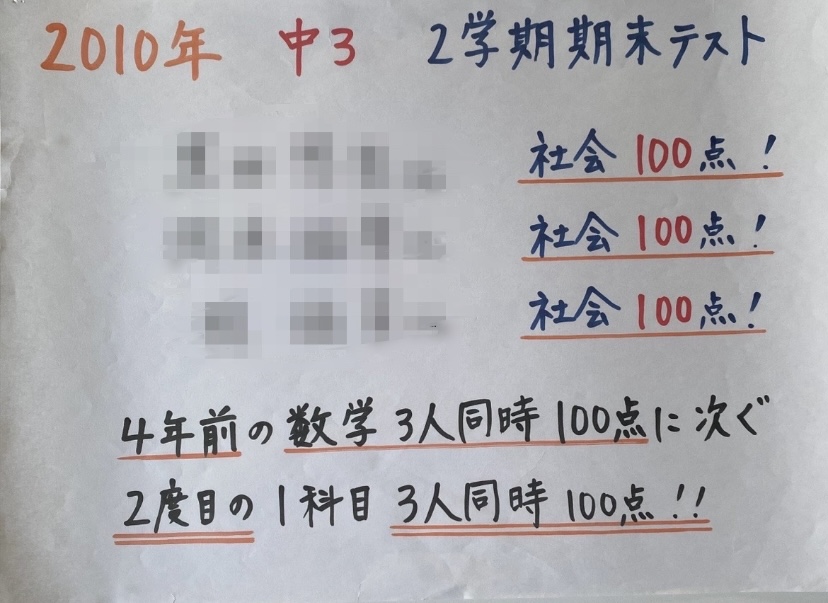 2010年 中3 2学期期末テスト
社会 100点!
社会 100点!
社会 100点!
4年前の数学3人同時100点に次ぐ
2度目の1科目3人同時100点!!